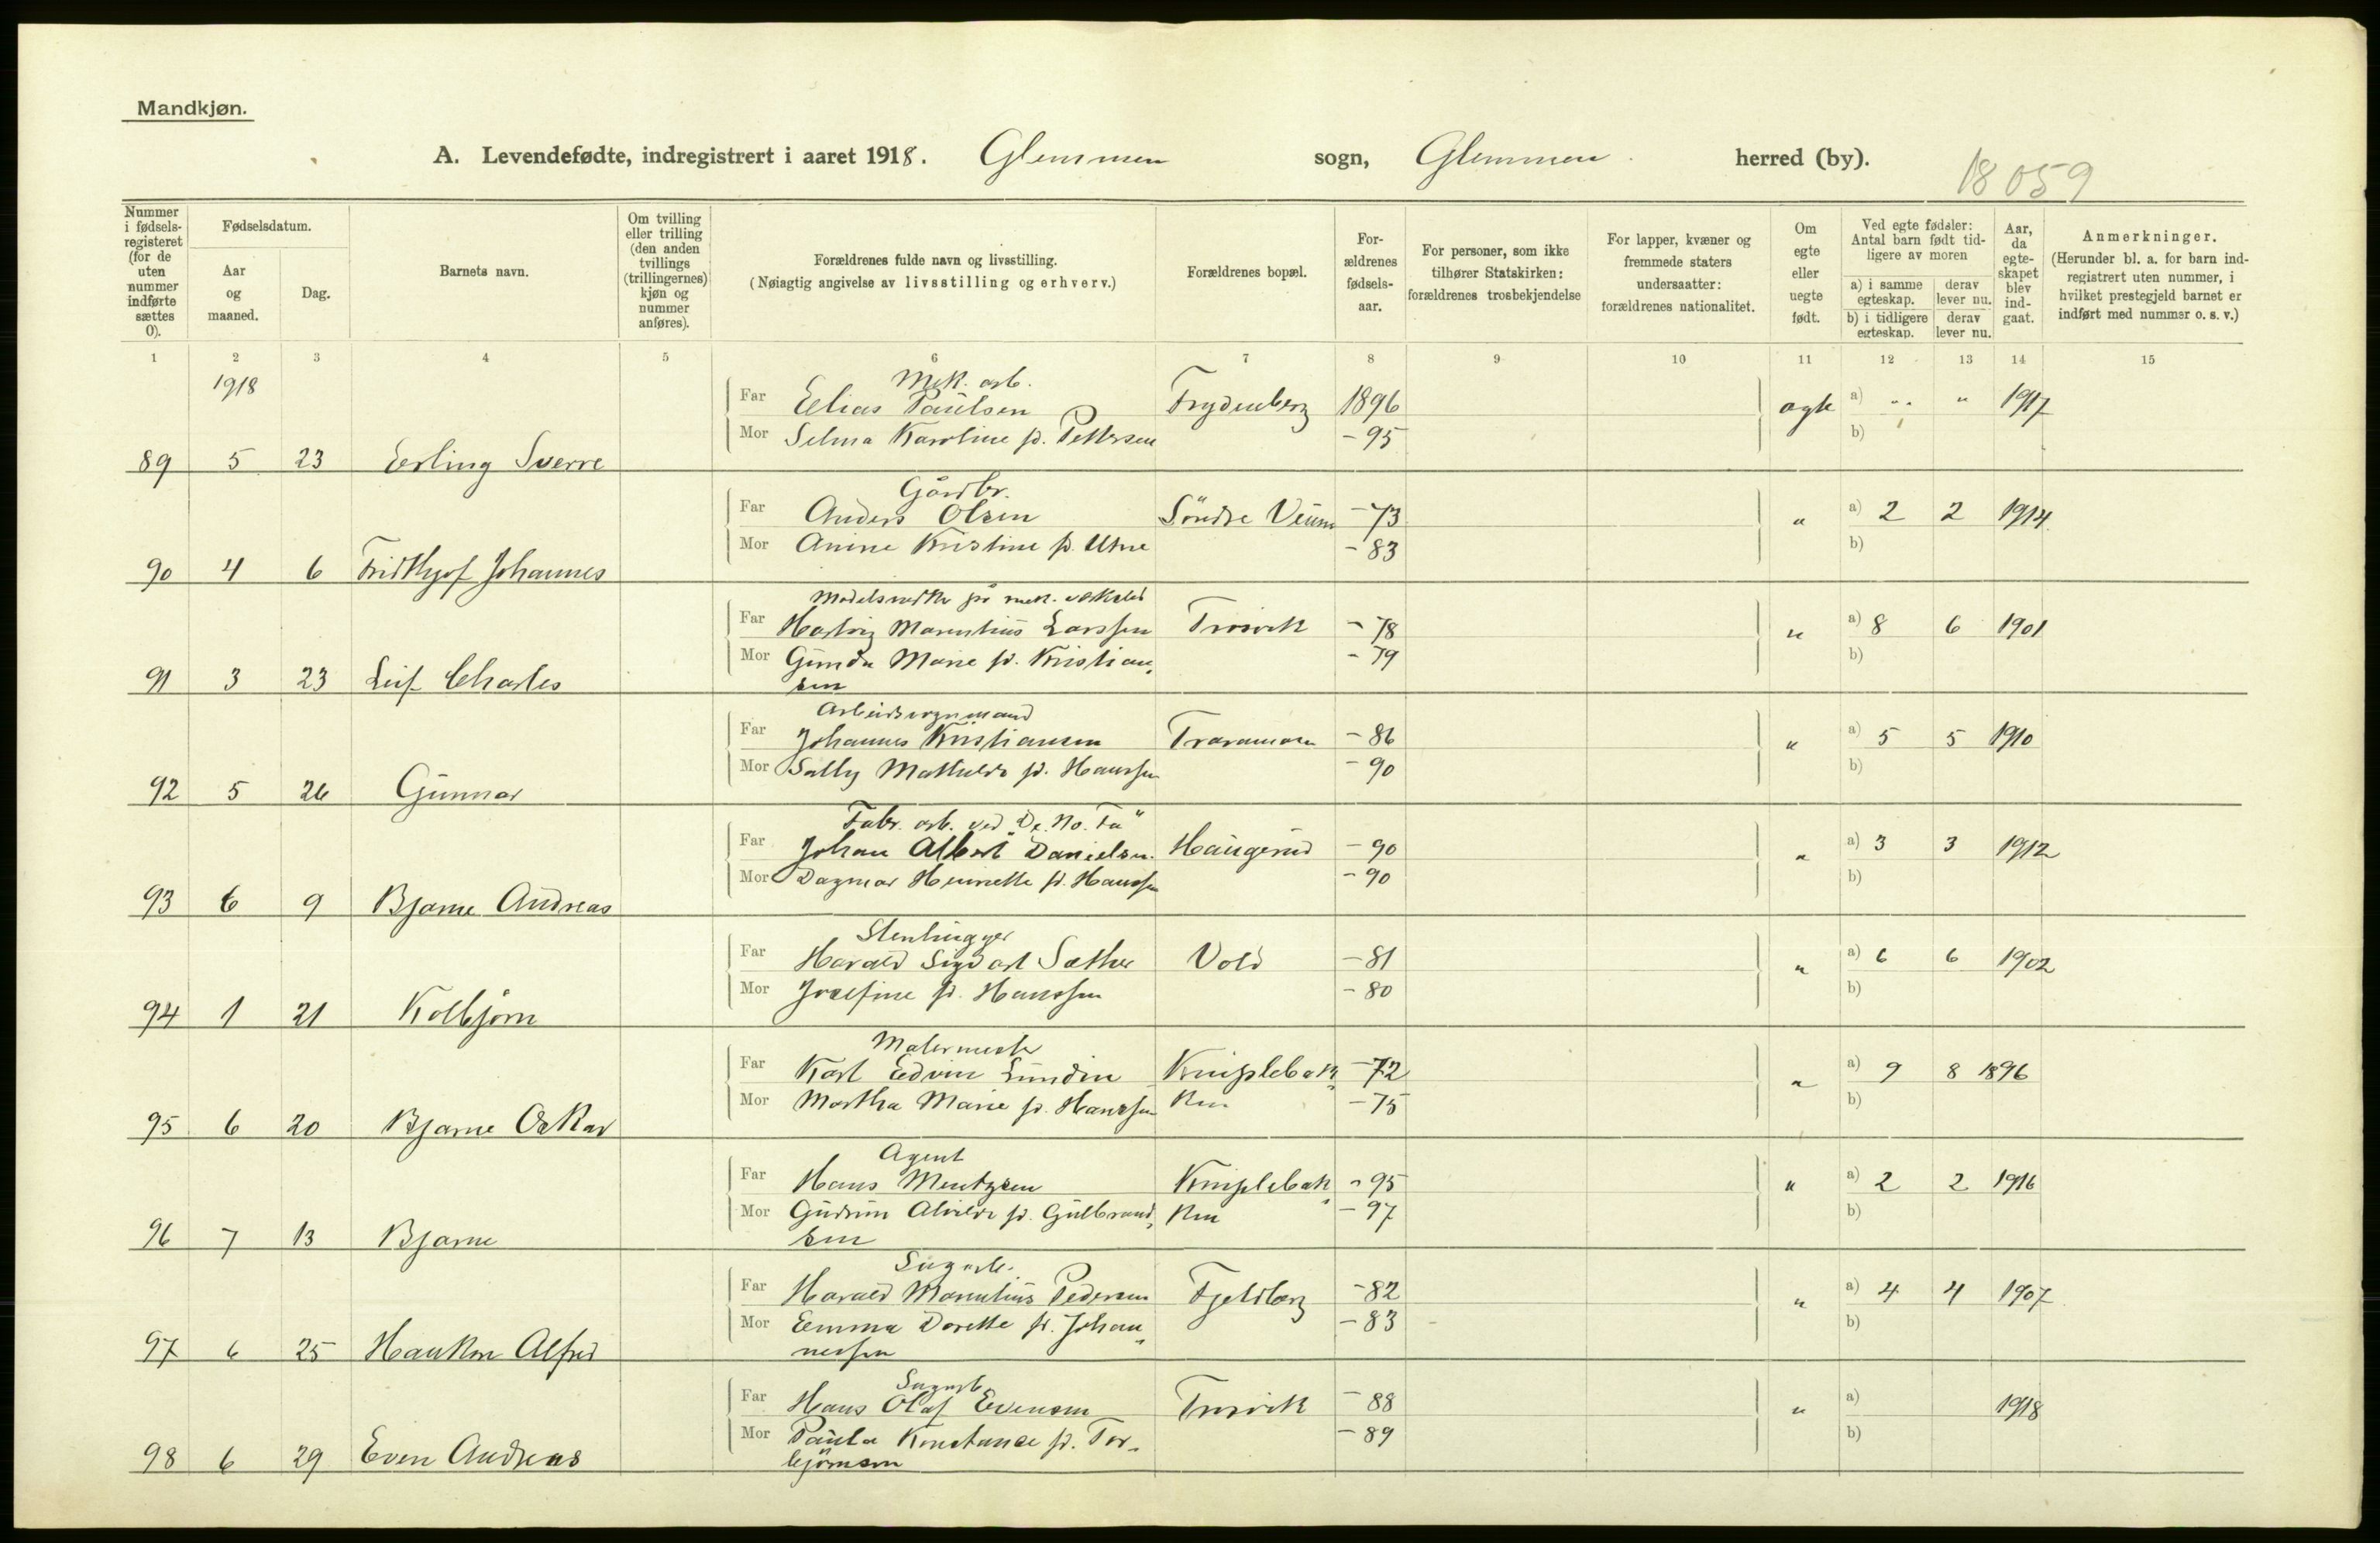 Mandkjøn.
A. Levendefødte, indregistrert i aaret 1918. Glemmen sogn, Glemmen herred (by).
18059
Nummer i fødsels-registeret (for de uten nummer indførte sættes 0).
Fødselsdatum.
Aar og maaned.
Dag.
Barnets navn.
Om tvilling eller trilling (den anden tvillings (trillingernes) kjøn og nummer anføres).
Forældrenes fulde navn og livsstilling.
(Nøiagtig angivelse av livsstilling og erhverv.)
Forældrenes bopæl.
For-ældrenes fødsels-aar.
For personer, som ikke tilhører Statskirken: forældrenes trosbekjendelse
For lapper, kvæner og fremmede staters undersaatter: forældrenes nationalitet.
Om egte eller uegte født.
Ved egte fødsler: Antal barn født tid-ligere av moren
a) i samme egteskap. derav lever nu.
b) i tidligere egteskap. derav lever nu.
Aar, da egte-skapet blev ind-gaat.
Anmerkninger.
(Herunder bl. a. for barn ind-registrert uten nummer, i hvilket prestegjeld barnet er indført med nummer o. s. v.)
1 2 3 4 5 6 7 8 9 10 11 12 13 14 15
1918
Mek. arb.
Far Elias Paulsen Frydenberg 1896 ægte a) " " 1917
Mor Selma Karoline f. Pettersen - 95 b)
89 5 23 Erling Sverre
Gårdbr.
Far Anders Olsen Söndre Veum - 73 " a) 2 2 1914
Mor Anine Kristine f. Utne - 83 b)
90 4 6 Fridthjof Johannes
Modelsnedker på mek. verksted
Far Hartvig Marentius Larssen Trosvik - 78 " a) 8 6 1901
Mor Gunda Marie f. Kristian- - 79 b)
sen
91 3 23 Leif Charles
Arbeidsvognmand
Far Johannes Kristiansen Traramosen - 86 " a) 5 5 1910
Mor Sally Mathilde f. Hanssen - 90 b)
92 5 26 Gunnar
Fabr. arb. ved "De. No. Fa"
Far Johan Albert Danielsen. Haugerud - 90 " a) 3 3 1912
Mor Dagmar Henriette f. Hanssen - 90 b)
93 6 9 Bjarne Andreas
Stenhugger
Far Harald Sigvart Sæther Vold - 81 " a) 6 6 1902
Mor Josefine f. Hanssen - 80 b)
94 1 21 Kolbjørn
Malermester
Far Karl Edvin Lundin Kniplebak- - 72 " a) 9 8 1896
Mor Martha Marie f. Hanssen ken - 75 b)
95 6 20 Bjarne Oskar
Agent
Far Hans Mentzsen Kniplebak- - 95 " a) 2 2 1916
Mor Gudrun Alvilde f. Gulbrand- ken - 97 b)
sen
96 7 13 Bjarne
Sagarb.
Far Harald Marentius Pedersen Fjeldberg - 82 " a) 4 4 1907
Mor Emma Dorette f. Johan- - 83 b)
nessen
97 6 25 Haakon Alfred
Sagarb.
Far Hans Olaf Evensen Trosvik - 88 " a) 1918
Mor Paula Konstanse f. Tor- - 89 b)
bjørnsen
98 6 29 Even Andreas